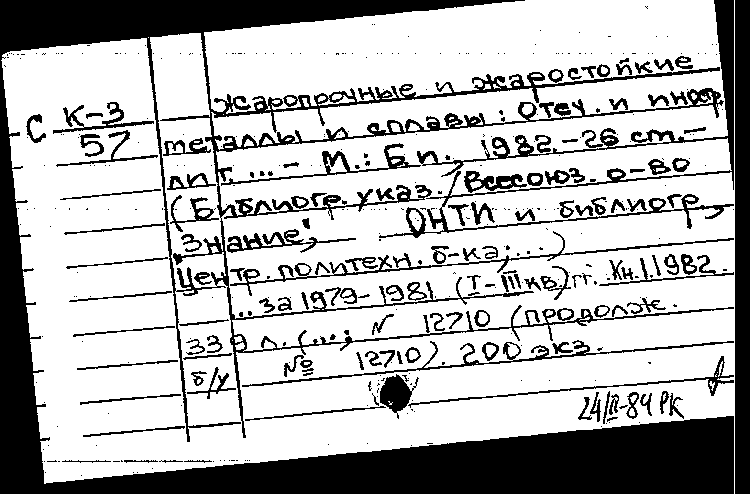 жаропрочные и жаростойкие
С К-3
57
металлы и сплавы: Отеч. и иностр.
лит. ... - М.: Б и., 1982. - 26 см. -
(Библиогр. указ. / Всесоюз. о-во
"Знание", ОНТИ и библиогр.,
Центр. политехн. б-ка; ...)
... за 1979-1981 (I-III кв.) гг. Кн.1. 1982.
339 л. (...; № 12710 (продолж.
б/у № 12710). 200 экз.
24/II-84 РК